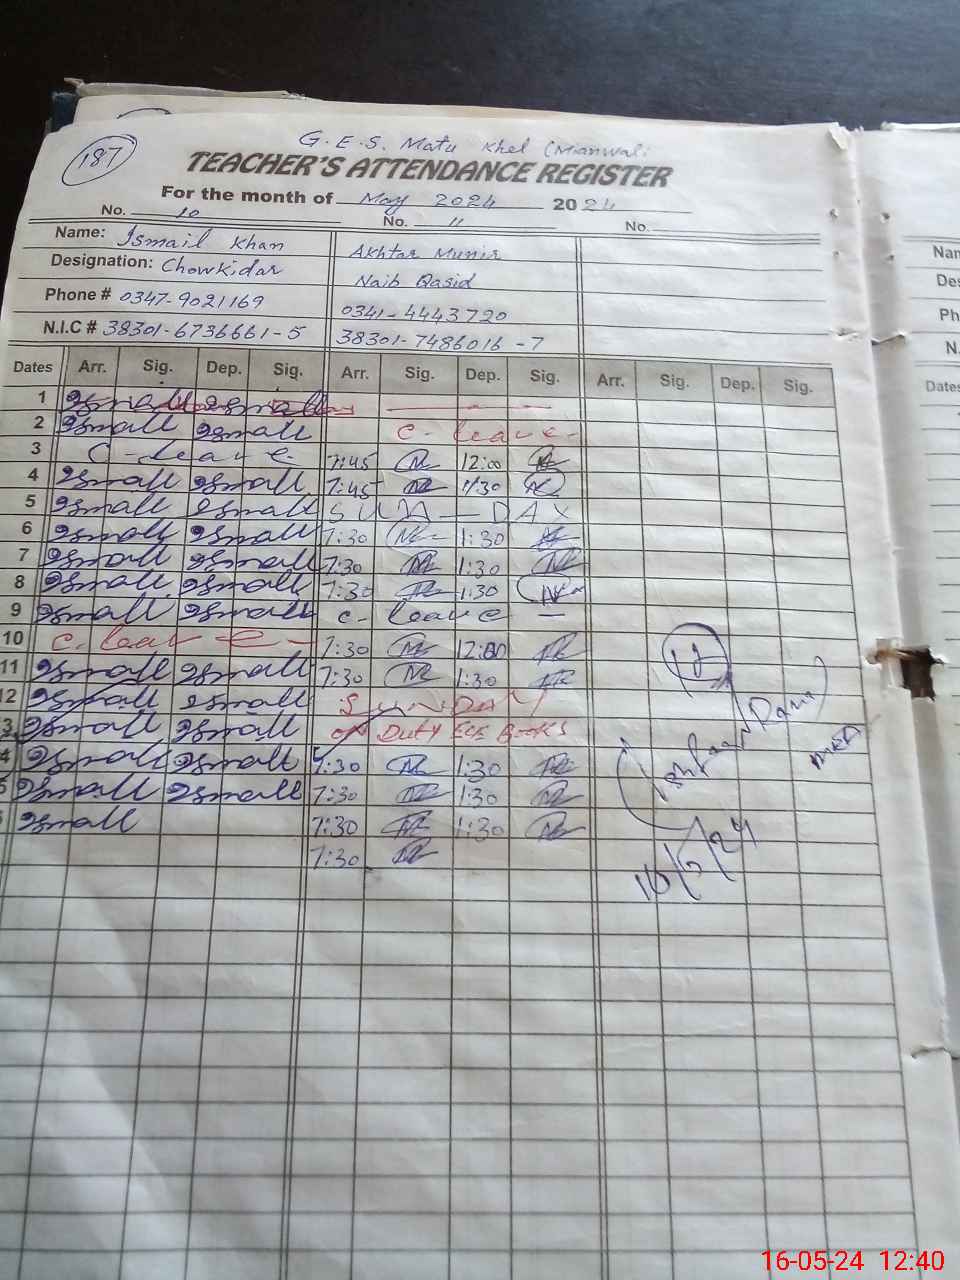 187
G.E.S. Matu Khel (Mianwali
TEACHER'S ATTENDANCE REGISTER
For the month of May 2024 2024
No. 10 No. 11 No.
Name: Ismail Khan Akhtar Munir
Designation: Chowkidar Naib Qasid
Phone # 0347-9021169 0341-4443720
N.I.C # 38301-6736661-5 38301-7486016-7
Dates Arr. Sig. Dep. Sig. Arr. Sig. Dep. Sig. Arr. Sig. Dep. Sig.
1 Ismail Ismail
2 Ismail Ismail C-leave-
3 C-leave 7:45 12:00
4 Ismail Ismail 7:45 1:30
5 Ismail Ismail SUN-DAY
6 Ismail Ismail 7:30 1:30
7 Ismail Ismail 7:30 1:30
8 Ismail Ismail 7:30 1:30
9 Ismail Ismail C-leave-
10 C.leave- 7:30 12:00
11 Ismail Ismail 7:30 1:30
12 Ismail Ismail SUNDAY
3 Ismail Ismail on DUTY ECE BOOKS
4 Ismail Ismail 7:30 1:30
5 Ismail Ismail 7:30 1:30
6 Ismail 7:30 1:30
7:30
16/5/24
Nam
Des
Ph
N.
Dates
16-05-24 12:40